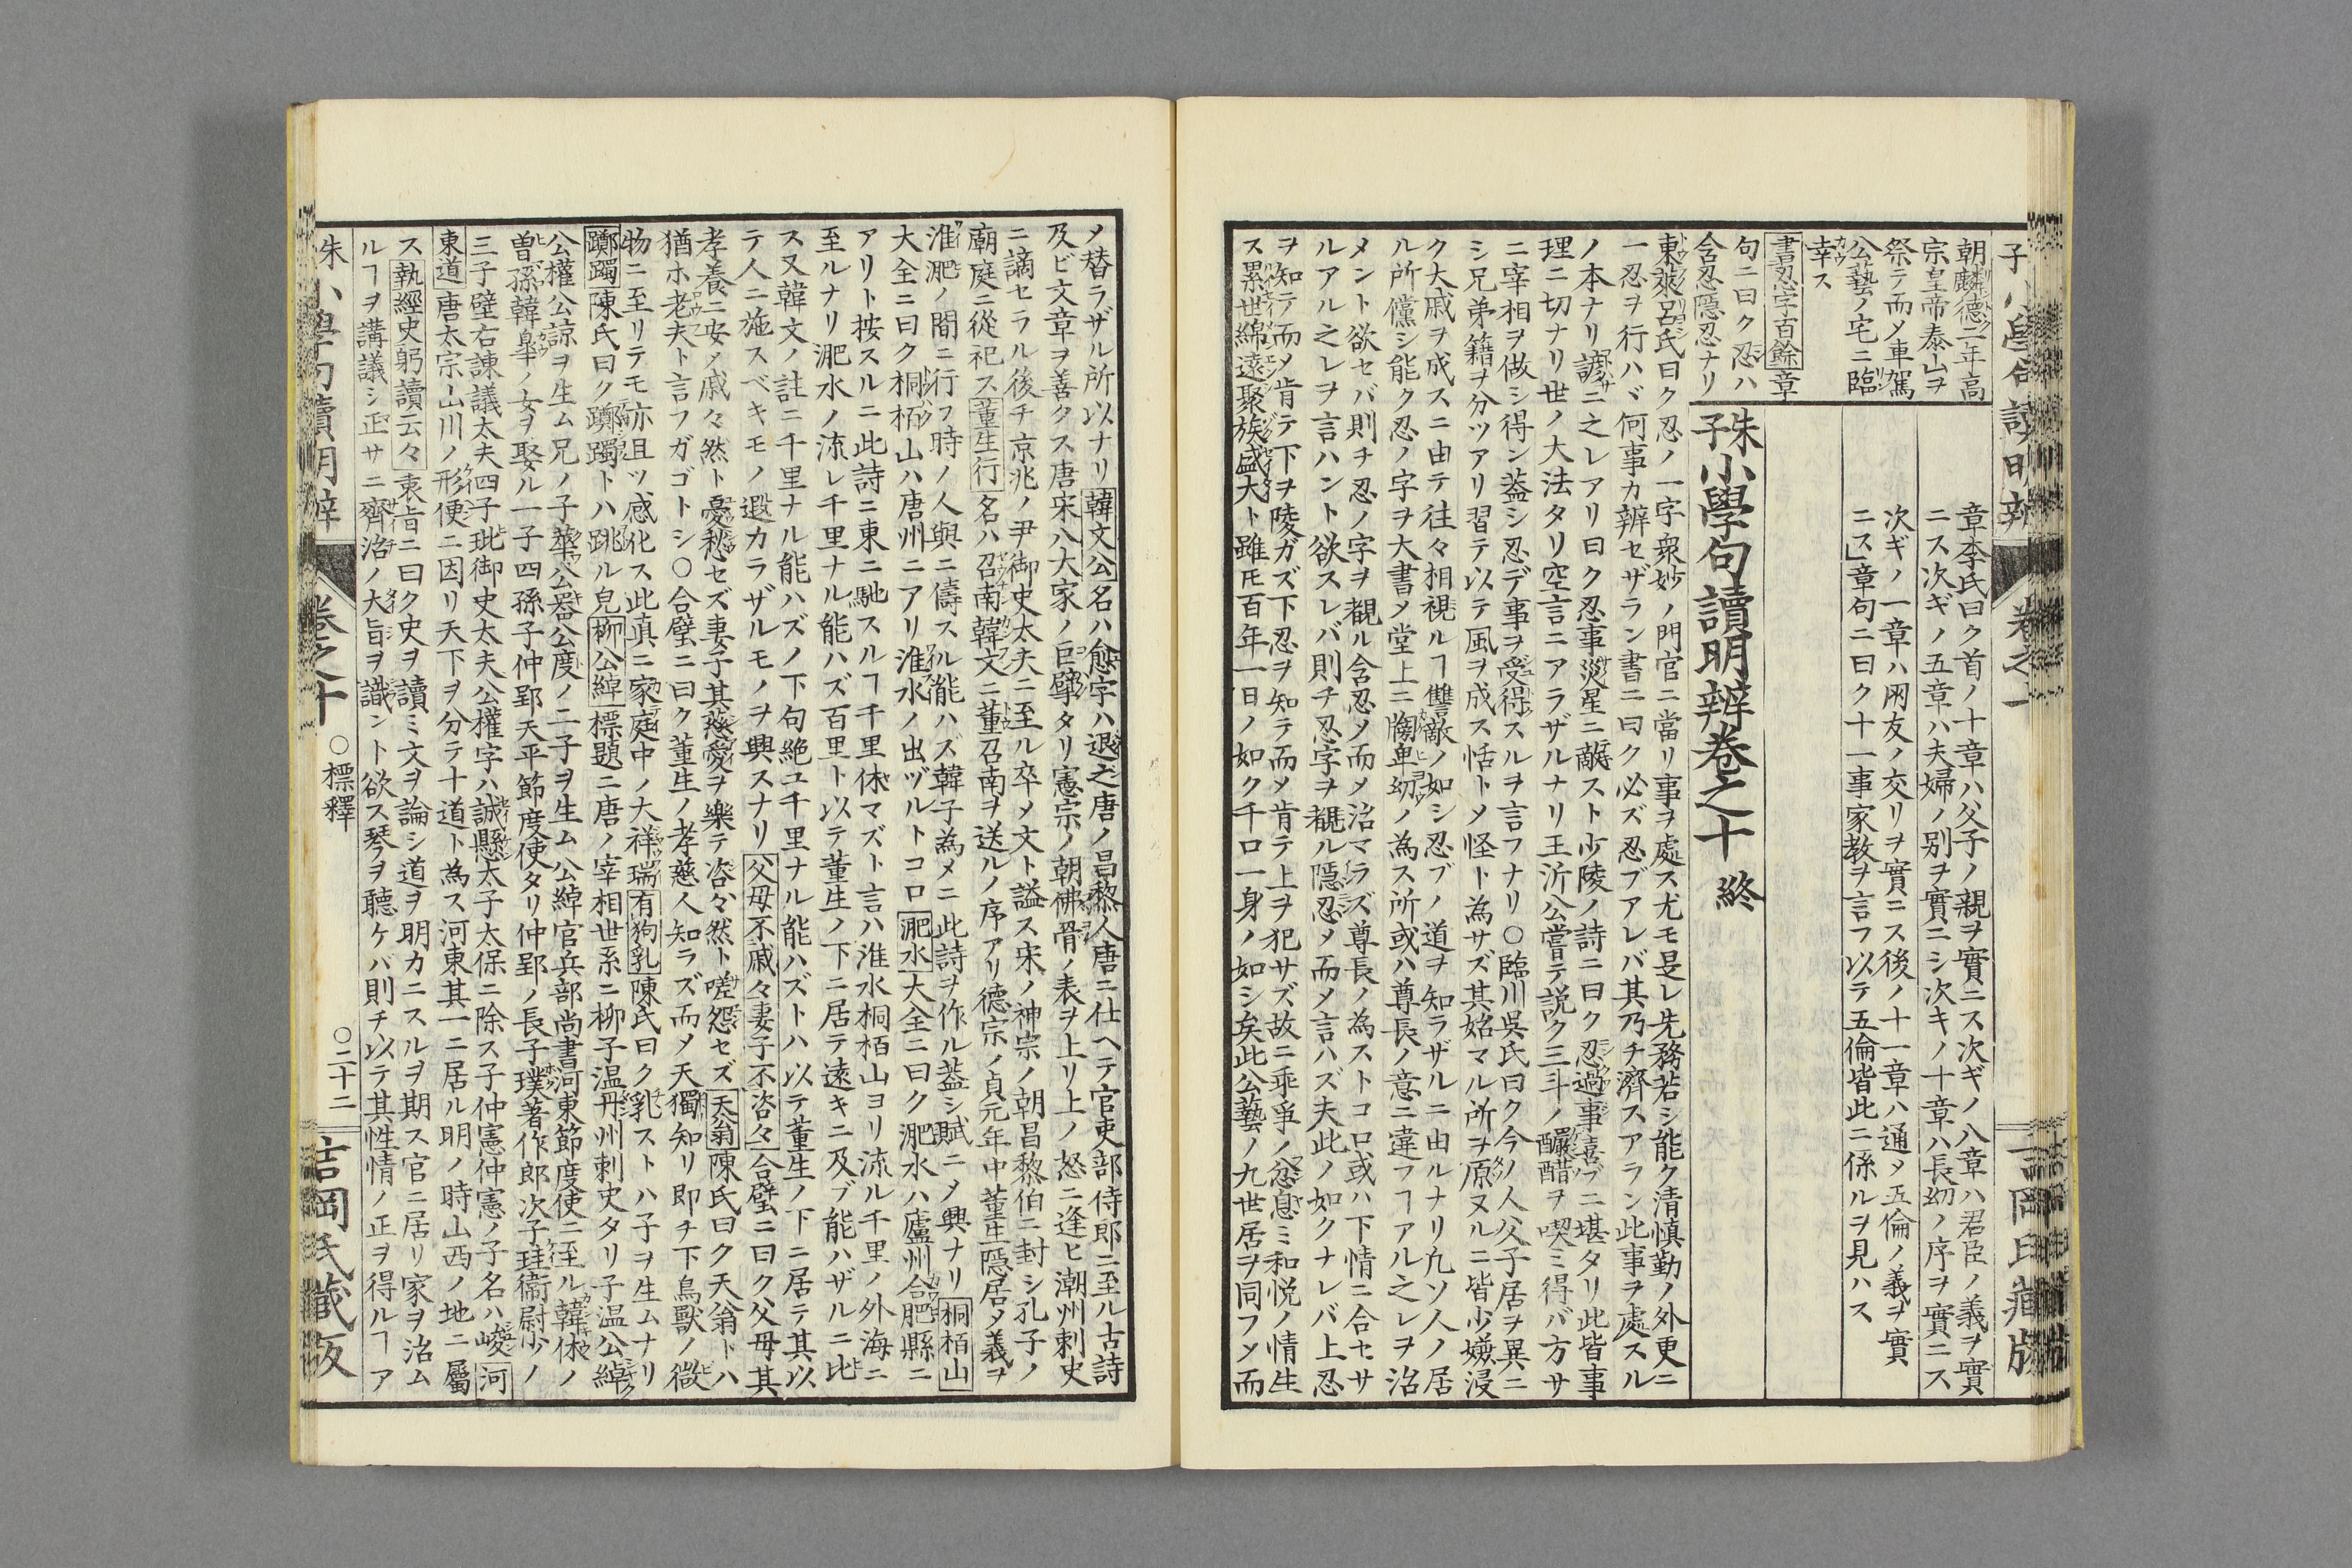 朝麟德二年高
宗皇帝泰山ヲ
祭テ而メ車駕
公藝ノ宅ニ臨
幸ス
書忍字百餘章
句ニ曰ク忍ハ
含忍隱忍ナリ
章李氏曰ク首ノ十章ハ父子ノ親ヲ實ニス次ギノ八章ハ君臣ノ義ヲ實
ニス次ギノ五章ハ夫婦ノ別ヲ實ニシ次キノ十章ハ長幼ノ序ヲ實ニス
次ギノ一章ハ朋友ノ交リヲ實ニス後ノ十一章ハ通メ五倫ノ義ヲ實
ニス」章句ニ曰ク十一事家教ヲ言フ以テ五倫皆此ニ係ルヲ見ハス
朱子小學句讀明辨卷之十 終
東萊呂氏曰ク忍ノ一字衆妙ノ門官ニ當リ事ヲ處ス尤モ是レ先務若シ能ク清慎勤ノ外更ニ
一忍ヲ行ハヾ何事カ辨セザラン書ニ曰ク必ズ忍ブアレバ其乃チ濟スアラン此事ヲ處スル
ノ本ナリ諺ニ之レアリ曰ク忍事災星ニ敵スト少陵ノ詩ニ曰ク忍過事喜ブニ堪タリ此皆事
理ニ切ナリ世ノ大法タリ空言ニアラザルナリ王沂公嘗テ説ク三斗ノ釅醋ヲ喫ミ得バ方サ
ニ宰相ヲ做シ得ン蓋シ忍デ事ヲ受得スルヲ言フナリ○臨川吳氏曰ク今ノ人父子居ヲ異ニ
シ兄弟籍ヲ分ツアリ習テ以テ風ヲ成ス恬トメ怪ト為サズ其始マル所ヲ原ヌルニ皆少嫌浸
ク大戚ヲ成スニ由テ往々相視ルヿ讐敵ノ如シ忍ブノ道ヲ知ラザルニ由ルナリ凢ソ人ノ居
ル所儻シ能ク忍ノ字ヲ大書メ堂上ニ牓卑幼ノ為ス所或ハ尊長ノ意ニ違フヿアル之レヲ治
メント欲セバ則チ忍ノ字ヲ覩ル含忍メ而メ治マラズ尊長ノ為ストコロ或ハ下情ニ合セサ
ルアル之レヲ言ハント欲スレバ則チ忍字ヲ覩ル隱忍メ而メ言ハズ夫此ノ如クナレバ上忍
ヲ知テ而メ肯テ下ヲ陵ガズ下忍ヲ知テ而メ肯テ上ヲ犯サズ故ニ乖爭ノ忿息ミ和悦ノ情生
ス累世綿遠聚族盛大ト雖㐧百年一日ノ如ク千口一身ノ如シ矣此公藝ノ九世居ヲ同フメ而
ノ替ラザル所以ナリ韓文公名ハ愈字ハ退之唐ノ昌黎ノ人唐ニ仕ヘテ官吏部侍郎ニ至ル古詩
及ビ文章ヲ善クス唐宋八大家ノ巨擘タリ憲宗ノ朝佛骨ノ表ヲ上リ上ノ怒ニ逢ヒ潮州刺史
ニ謫セラル後チ京兆ノ尹御史太夫ニ至ル卒メ文ト謚ス宋ノ神宗ノ朝昌黎伯ニ封シ孔子ノ
廟庭ニ從祀ス董生行名ハ召南韓文ニ董召南ヲ送ルノ序アリ德宗ノ貞元年中董生隱居メ義ヲ
淮淝ノ間ニ行フ時ノ人與ニ儔スル能ハズ韓子為メニ此詩ヲ作ル蓋シ賦ニメ興ナリ桐栢山
大全ニ曰ク桐栢山ハ唐州ニアリ淮水ノ出ヅルトコロ淝水大全ニ曰ク淝水ハ廬州合肥縣ニ
アリト按スルニ此詩ニ東ニ馳スルヿ千里休マズト言ハ淮水桐栢山ヨリ流ル千里ノ外海ニ
至ルナリ淝水ノ流レ千里ナル能ハズ百里ト以テ董生ノ下ニ居テ遠キニ及ブ能ハザルニ比
ス又韓文ノ註ニ千里ナル能ハズノ下句絶ユ千里ナル能ハズトハ以テ董生ノ下ニ居テ其以
テ人ニ施スベキモノ遐カラザルモノヲ興スナリ父母不戚々妻子不咨々合璧ニ曰ク父母其
孝養ニ安メ戚々然ト憂愁セズ妻子其慈愛ヲ樂テ咨々然ト嗟怨セズ天翁陳氏曰ク天翁トハ
猶ホ老夫ト言フガゴトシ○合璧ニ曰ク董生ノ孝慈人知ラズ而メ天獨知リ即チ下鳥獸ノ微
物ニ至リテモ亦且ツ感化ス此眞ニ家庭中ノ大祥瑞有狗乳陳氏曰ク乳ストハ子ヲ生ムナリ
躑躅陳氏曰ク躑躅トハ跳ル皃柳公綽標題ニ唐ノ宰相世系ニ柳子溫丹州刺史タリ子溫公綽
公權公諒ヲ生ム兄ノ子華公器公度ノ二子ヲ生ム公綽官兵部尚書河東節度使ニ至ル韓休ノ
曽孫韓皐ノ女ヲ娶ル一子四孫子仲郢天平節度使タリ仲郢ノ長子璞著作郎次子珪衞尉少ノ
三子璧右諫議太夫四子玭御史太夫公權字ハ誠懸太子太保ニ除ス子仲憲仲憲ノ子名ハ峻河
東道唐太宗山川ノ形便ニ因リ天下ヲ分テ十道ト為ス河東其一ニ居ル明ノ時山西ノ地ニ屬
ス執經史躬讀云々衷旨ニ曰ク史ヲ讀ミ文ヲ論シ道ヲ明カニスルヲ期ス官ニ居リ家ヲ治ム
ルヿヲ講議シ正サニ齊治ノ大旨ヲ識ント欲ス琴ヲ聽ケバ則チ以テ其性情ノ正ヲ得ルヿア
卷之十 ○標釋 ○二十二 吉岡氏藏版